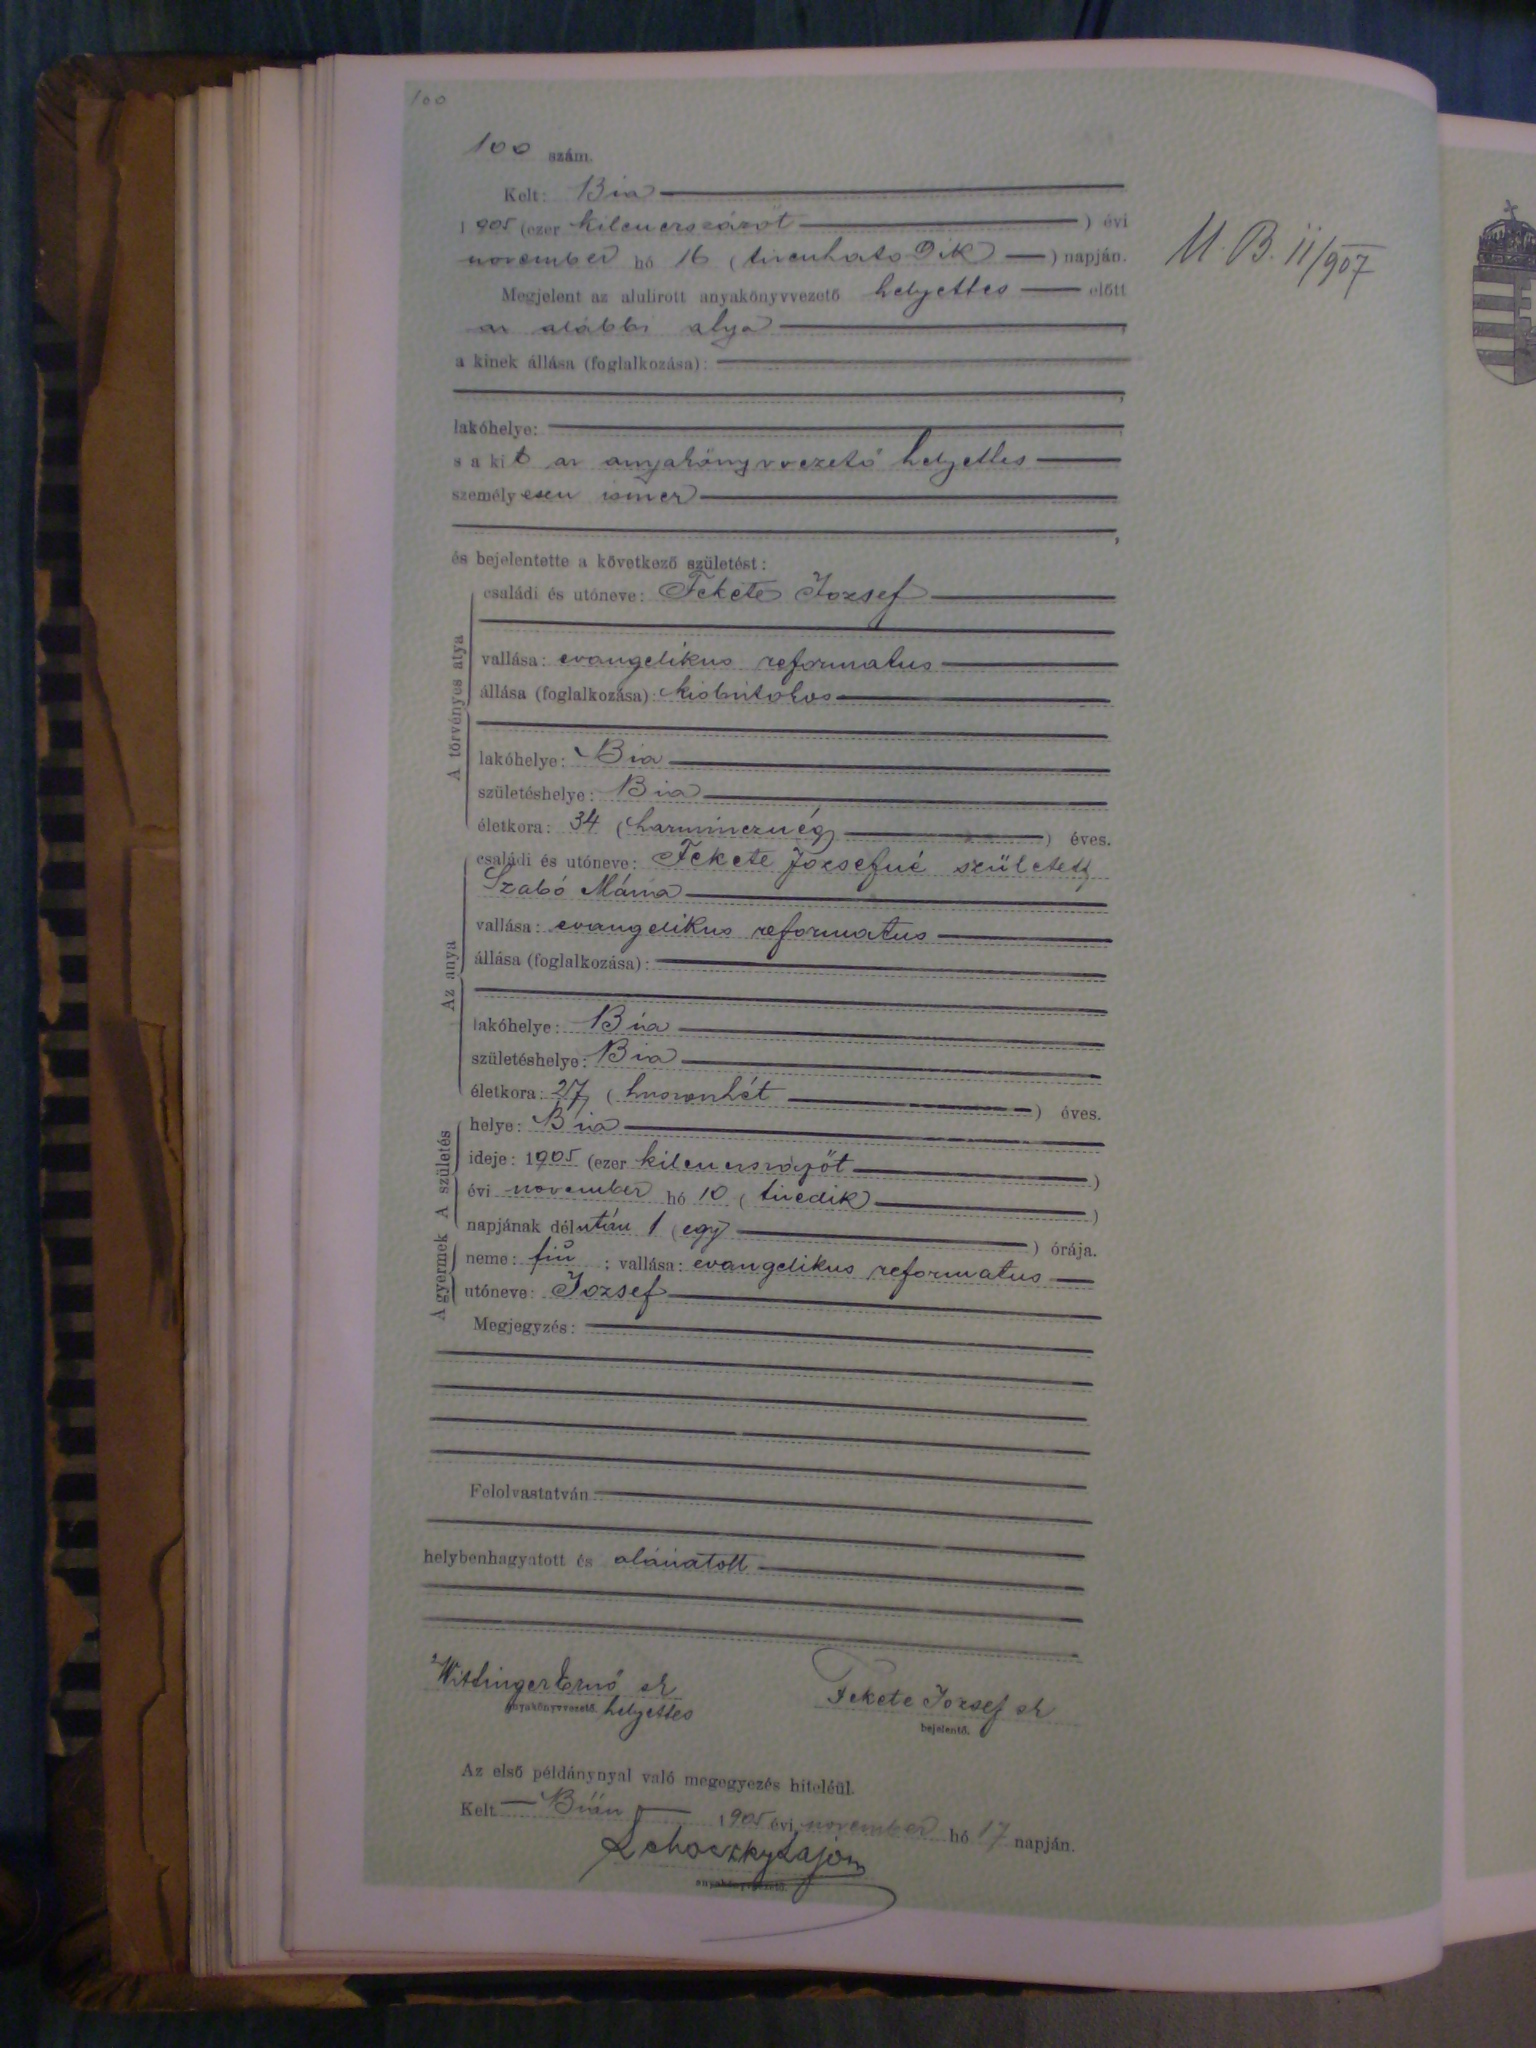 100
100 szám.
Kelt: Bia
1905 (ezer kilenczszázöt ) évi
november hó 16 (tizenhatodik ) napján.
Megjelent az alulirott anyakönyvvezető helyettes előtt
az alábbi atya
a kinek állása (foglalkozása):
lakóhelye:
s a kit az anyakönyvvezető helyettes
személyesen ismer
és bejelentette a következő születést:
A törvényes atya
családi és utóneve: Fekete József
vallása: evangelikus reformatus
állása (foglalkozása): kisbirtokos
lakóhelye: Bia
születéshelye: Bia
életkora: 34 (harmincznégy ) éves.
Az anya
családi és utóneve: Fekete Józsefné született
Szabó Mária
vallása: evangelikus reformatus
állása (foglalkozása):
lakóhelye: Bia
születéshelye: Bia
életkora: 27 (huszonhét ) éves.
A születés
helye: Bia
ideje: 1905 (ezer kilenczszázöt )
évi november hó 10 (tizedik )
napjának délután 1 (egy ) órája.
A gyermek
neme: fiú ; vallása: evangelikus reformatus
utóneve: József
Megjegyzés:
Felolvastatván
helybenhagyatott és aláiratott
Wittinger Ernő sk Fekete József sk
anyakönyvvezető. helyettes bejelentő.
Az első példánynyal való megegyezés hiteléül.
Kelt Bián 1905 évi november hó 17 napján.
Lehoczky Lajos
anyakönyvvezető.
U. B. ii/907